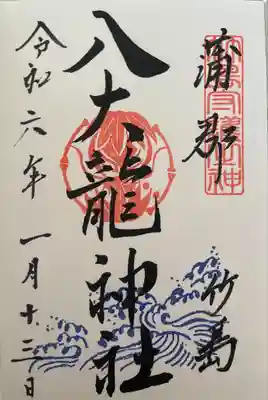 蒲郡 竹島
八大龍神社
令和六年一月十三日